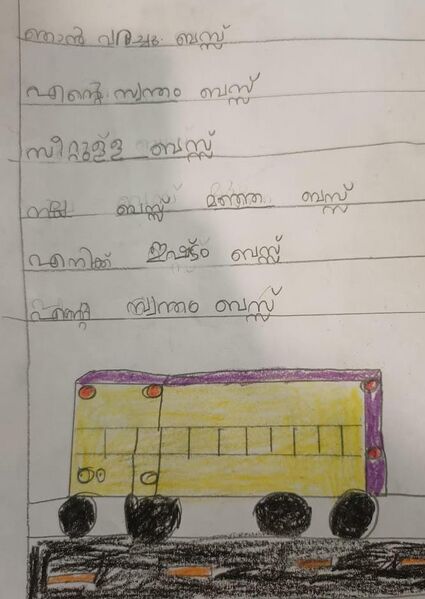 ഞാൻ വരച്ച ബസ്സ്
എന്റെ സ്വന്തം ബസ്സ്
സീറ്റുള്ള ബസ്സ്
നല്ല ബസ്സ് മഞ്ഞ ബസ്സ്
എനിക്ക് ഇഷ്ടം ബസ്സ്
എന്റെ സ്വന്തം ബസ്സ്